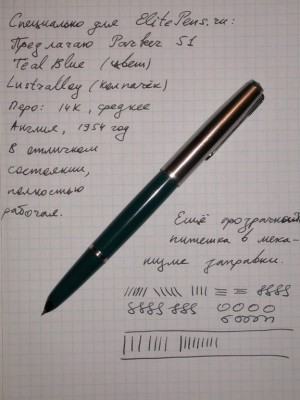 Специально для ElitePens.ru:
Предлагаю Parker 51
Teal Blue (цвет)
Lustraloy (колпачёк)
Перо: 14К, среднее
Англия, 1954 год
В отличном
состоянии,
полностью
рабочая.
Ещё прозрачной
пипешка в меха-
низме заправки.